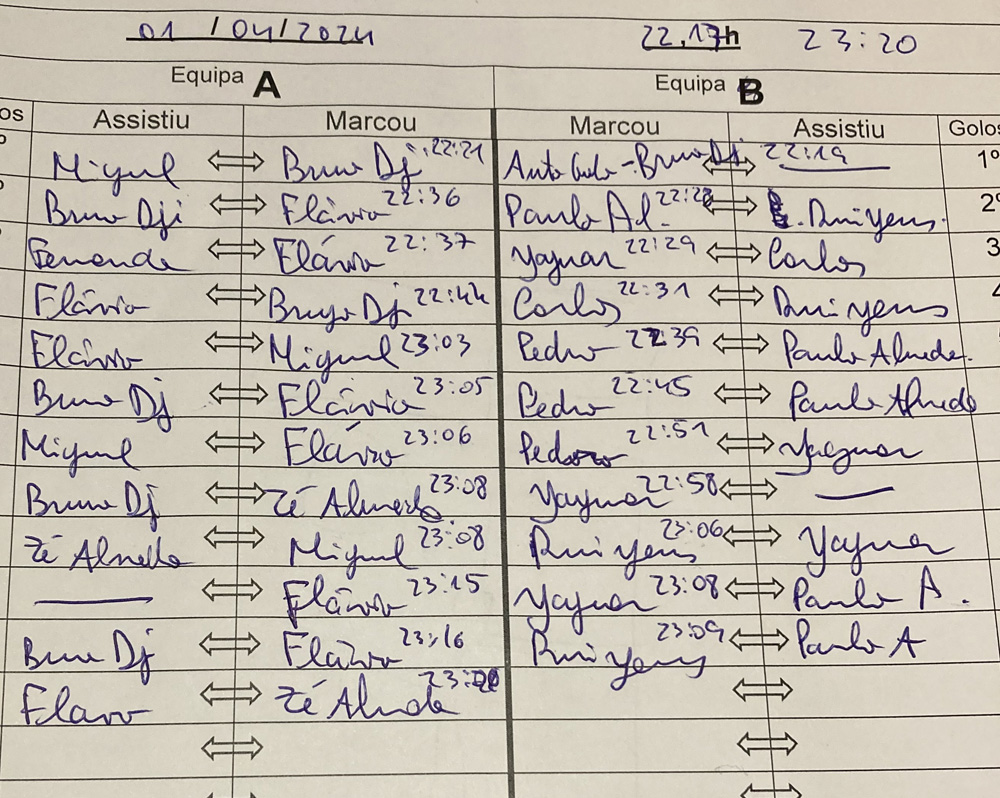 01 / 04 / 2024 22.17h 23:20
Equipa A Equipa B
os Assistiu Marcou Marcou Assistiu Golos
Miguel ⇔ Bruno Dj 22:21 Auto Golo - Bruno Dj ⇔ 22:19 — 1º
Bruno Dji ⇔ Flávio 22:36 Paulo Al. 22:28 ⇔ Rui Yens. 2º
Fernando ⇔ Flávio 22:37 Yaguar 22:29 ⇔ Carlos 3
Flávio ⇔ Bruno Dj 22:44 Carlos 22:31 ⇔ Rui Yens
Flávio ⇔ Miguel 23:03 Pedro 22:39 ⇔ Paulo Almeida.
Bruno Dj ⇔ Flávio 23:05 Pedro 22:45 ⇔ Paulo Almeida
Miguel ⇔ Flávio 23:06 Pedro 22:51 ⇔ Yaguar
Bruno Dj ⇔ Zé Almeida 23:08 Yaguar 22:58 ⇔ —
Zé Almeida ⇔ Miguel 23:08 Rui Yens 23:06 ⇔ Yaguar
— ⇔ Flávio 23:15 Yaguar 23:08 ⇔ Paulo A.
Bruno Dj ⇔ Flávio 23:16 Rui Yens 23:09 ⇔ Paulo A
Flavio ⇔ Zé Almeida 23:20